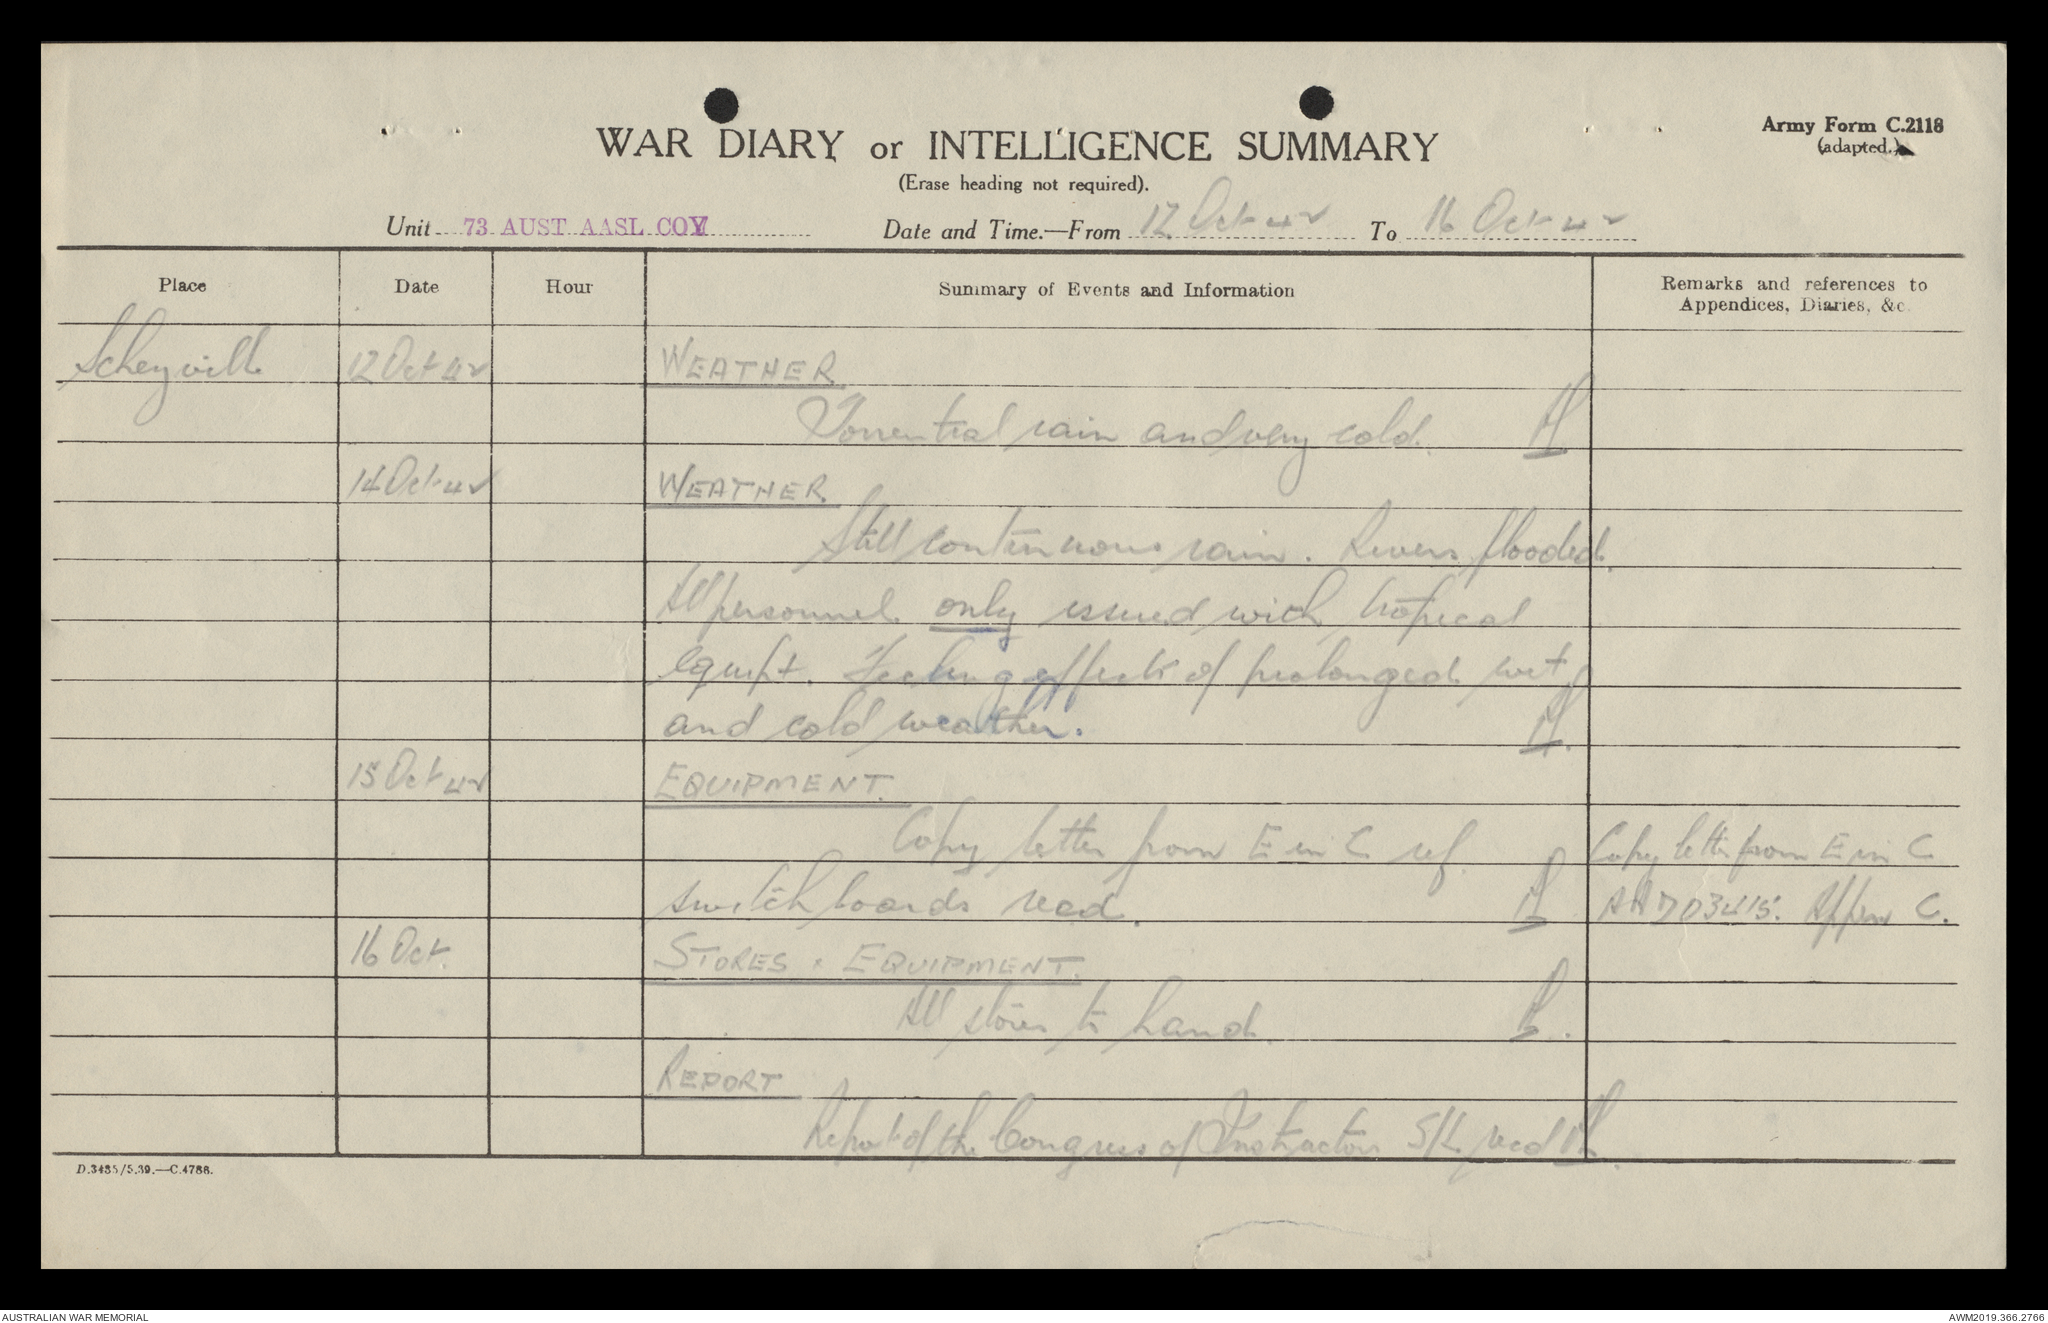 Army Form C.2118
(adapted.)
WAR DIARY or INTELLIGENCE SUMMARY
(Erase heading not required).
Unit 73 AUST AASL COY Date and Time.—From 12 Oct 42 To 16 Oct 42
Place Date Hour Summary of Events and Information Remarks and references to
Appendices, Diaries, &c.
Scheyville 12 Oct 42 WEATHER
Torrential rain and very cold.
14 Oct 42 WEATHER
Still continuous rain. Rivers flooded.
All personnel only issued with tropical
equipt. Feeling effects of prolonged wet
and cold weather.
15 Oct 42 EQUIPMENT.
Copy letter from E in C ref. Copy letter from E in C
switchboards recd. Appen C.
16 Oct. STORES & EQUIPMENT.
All stores to hand.
REPORT
Report of the Congress of Instructors S/L recd
D.3485/5.39.—C.4788.
AUSTRALIAN WAR MEMORIAL AWM2019.366.2766